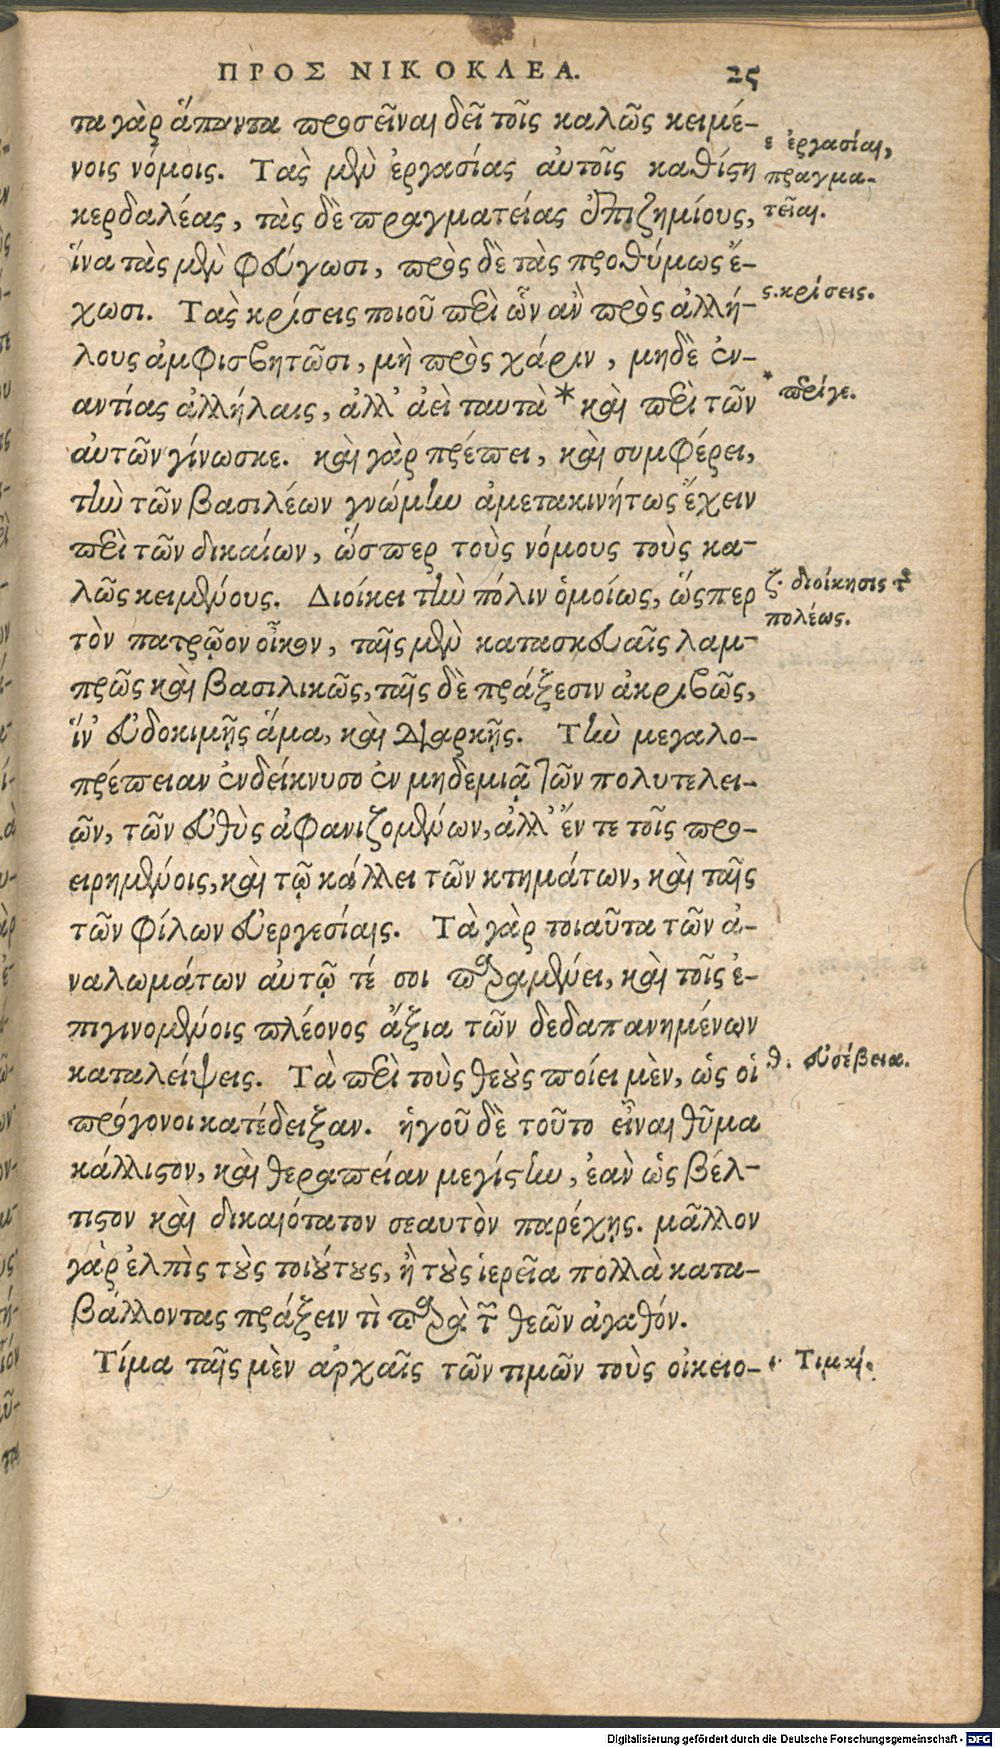 ΠΡΟΣ ΝΙΚΟΚΛΕΑ. 25
τα γὰρ ἅπαντα προσεῖναι δεῖ τοῖς καλῶς κειμέ-
νοις νόμοις. Τὰς μὲν ἐργασίας αὐτοῖς καθίστη
κερδαλέας, τὰς δὲ πραγματείας ἐπιζημίους,
ἵνα τὰς μὲν φεύγωσι, πρὸς δὲ τὰς προθύμως ἔ-
χωσι. Τὰς κρίσεις ποιοῦ περὶ ὧν ἂν πρὸς ἀλλή-
λους ἀμφισβητῶσι, μὴ πρὸς χάριν, μηδὲ ἐν-
αντίας ἀλλήλαις, ἀλλ' ἀεὶ ταυτὰ * καὶ περὶ τῶν
αὐτῶν γίνωσκε. καὶ γὰρ πρέπει, καὶ συμφέρει,
τὴν τῶν βασιλέων γνώμην ἀμετακινήτως ἔχειν
περὶ τῶν δικαίων, ὥσπερ τοὺς νόμους τοὺς κα-
λῶς κειμένους. Διοίκει τὴν πόλιν ὁμοίως, ὥσπερ
τὸν πατρῷον οἶκον, ταῖς μὲν κατασκευαῖς λαμ-
πρῶς καὶ βασιλικῶς, ταῖς δὲ πράξεσιν ἀκριβῶς,
ἵν' εὐδοκιμῇς ἅμα, καὶ διαρκῇς. Τὴν μεγαλο-
πρέπειαν ἐνδείκνυσο ἐν μηδεμιᾷ τῶν πολυτελει-
ῶν, τῶν εὐθὺς ἀφανιζομένων, ἀλλ' ἔν τε τοῖς προ-
ειρημένοις, καὶ τῷ κάλλει τῶν κτημάτων, καὶ ταῖς
τῶν φίλων εὐεργεσίαις. Τὰ γὰρ τοιαῦτα τῶν ἀ-
ναλωμάτων αὐτῷ τέ σοι παραμένει, καὶ τοῖς ἐ-
πιγινομένοις πλέονος ἄξια τῶν δεδαπανημένων
καταλείψεις. Τὰ περὶ τοὺς θεοὺς ποίει μὲν, ὡς οἱ
πρόγονοι κατέδειξαν. ἡγοῦ δὲ τοῦτο εἶναι θῦμα
κάλλιστον, καὶ θεραπείαν μεγίστην, ἐὰν ὡς βέλ-
τιστον καὶ δικαιότατον σεαυτὸν παρέχῃς. μᾶλλον
γὰρ ἐλπὶς τοὺς τοιούτους, ἢ τοὺς ἱερεῖα πολλὰ κατα-
βάλλοντας πράξειν τὶ παρὰ τῶν θεῶν ἀγαθόν.
Τίμα ταῖς μὲν ἀρχαῖς τῶν τιμῶν τοὺς οἰκειο-
ε ἐργασίαι,
πραγμα-
τεῖαι.
ς. κρίσεις.
* περί γε.
ζ. διοίκησις τῆς
πόλεως.
θ. εὐσέβεια.
ι. Τιμαί.
Digitalisierung gefördert durch die Deutsche Forschungsgemeinschaft - DFG